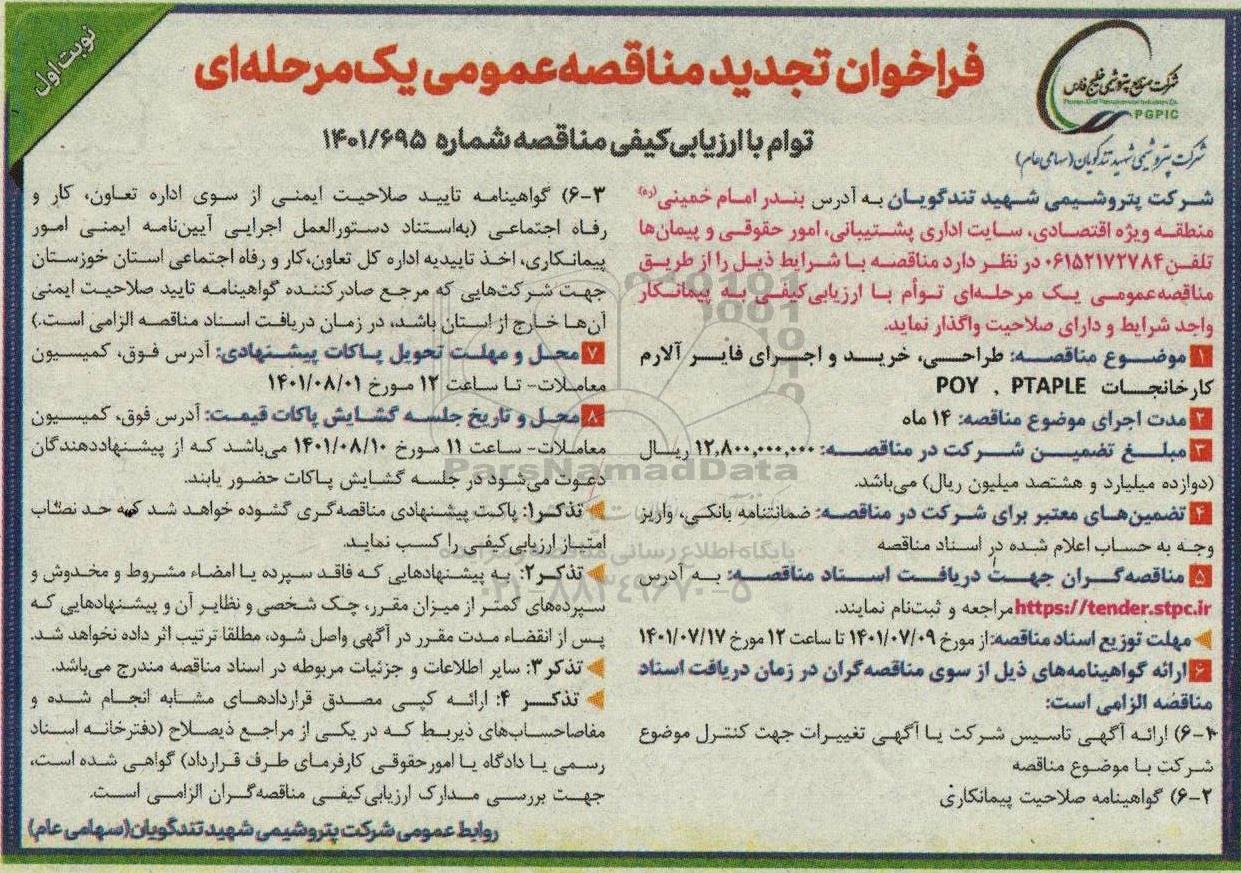 نوبت اول
شرکت صنایع پتروشیمی خلیج فارس
Persian Gulf Petrochemical Industries Co.
PGPIC
شرکت پتروشیمی شهید تندگویان (سهامی عام)
فراخوان تجدید مناقصه عمومی یک مرحله‌ای
توام با ارزیابی کیفی مناقصه شماره ۱۴۰۱/۶۹۵
شرکت پتروشیمی شهید تندگویان به آدرس بندر امام خمینی(ره)
منطقه ویژه اقتصادی، سایت اداری پشتیبانی، امور حقوقی و پیمان‌ها
تلفن ۰۶۱۵۲۱۷۲۷۸۴ در نظر دارد مناقصه با شرایط ذیل را از طریق
مناقصه عمومی یک مرحله‌ای توأم با ارزیابی کیفی به پیمانکار
واجد شرایط و دارای صلاحیت واگذار نماید.
۱ موضوع مناقصه: طراحی، خرید و اجرای فایر آلارم
کارخانجات POY , PTAPLE
۲ مدت اجرای موضوع مناقصه: ۱۴ ماه
۳ مبلغ تضمین شرکت در مناقصه: ۱۲,۸۰۰,۰۰۰,۰۰۰ ریال
(دوازده میلیارد و هشتصد میلیون ریال) می‌باشد.
۴ تضمین‌های معتبر برای شرکت در مناقصه: ضمانتنامه بانکی، واریز
وجه به حساب اعلام شده در اسناد مناقصه
۵ مناقصه‌گران جهت دریافت اسناد مناقصه: به آدرس
https://tender.stpc.ir مراجعه و ثبت‌نام نمایند.
مهلت توزیع اسناد مناقصه: از مورخ ۱۴۰۱/۰۷/۰۹ تا ساعت ۱۲ مورخ ۱۴۰۱/۰۷/۱۷
۶ ارائه گواهینامه‌های ذیل از سوی مناقصه‌گران در زمان دریافت اسناد
مناقصه الزامی است:
۶-۱) ارائه آگهی تاسیس شرکت یا آگهی تغییرات جهت کنترل موضوع
شرکت با موضوع مناقصه
۶-۲) گواهینامه صلاحیت پیمانکاری
۶-۳) گواهینامه تایید صلاحیت ایمنی از سوی اداره تعاون، کار و
رفاه اجتماعی (به‌استناد دستورالعمل اجرایی آیین‌نامه ایمنی امور
پیمانکاری، اخذ تاییدیه اداره کل تعاون،کار و رفاه اجتماعی استان خوزستان
جهت شرکت‌هایی که مرجع صادرکننده گواهینامه تایید صلاحیت ایمنی
آن‌ها خارج از استان باشد، در زمان دریافت اسناد مناقصه الزامی است.)
۷ محل و مهلت تحویل پاکات پیشنهادی: آدرس فوق، کمیسیون
معاملات- تا ساعت ۱۲ مورخ ۱۴۰۱/۰۸/۰۱
۸ محل و تاریخ جلسه گشایش پاکات قیمت: آدرس فوق، کمیسیون
معاملات- ساعت ۱۱ مورخ ۱۴۰۱/۰۸/۱۰ می‌باشد که از پیشنهاددهندگان
دعوت می‌شود در جلسه گشایش پاکات حضور یابند.
تذکر۱: پاکت پیشنهادی مناقصه‌گری گشوده خواهد شد که حد نصاب
امتیاز ارزیابی کیفی را کسب نماید.
تذکر۲: به پیشنهادهایی که فاقد سپرده یا امضاء مشروط و مخدوش و
سپرده‌های کمتر از میزان مقرر، چک شخصی و نظایر آن و پیشنهادهایی که
پس از انقضاء مدت مقرر در آگهی واصل شود، مطلقا ترتیب اثر داده نخواهد شد.
تذکر۳: سایر اطلاعات و جزئیات مربوطه در اسناد مناقصه مندرج می‌باشد.
تذکر ۴: ارائه کپی مصدق قراردادهای مشابه انجام شده و
مفاصاحساب‌های ذیربط که در یکی از مراجع ذیصلاح (دفترخانه اسناد
رسمی یا دادگاه یا امورحقوقی کارفرمای طرف قرارداد) گواهی شده است،
جهت بررسی مدارک ارزیابی کیفی مناقصه‌گران الزامی است.
روابط عمومی شرکت پتروشیمی شهید تندگویان(سهامی عام)
ParsNamadData
پایگاه اطلاع رسانی
۰۲۱-۸۸۳۴۹۶۷۰-۵